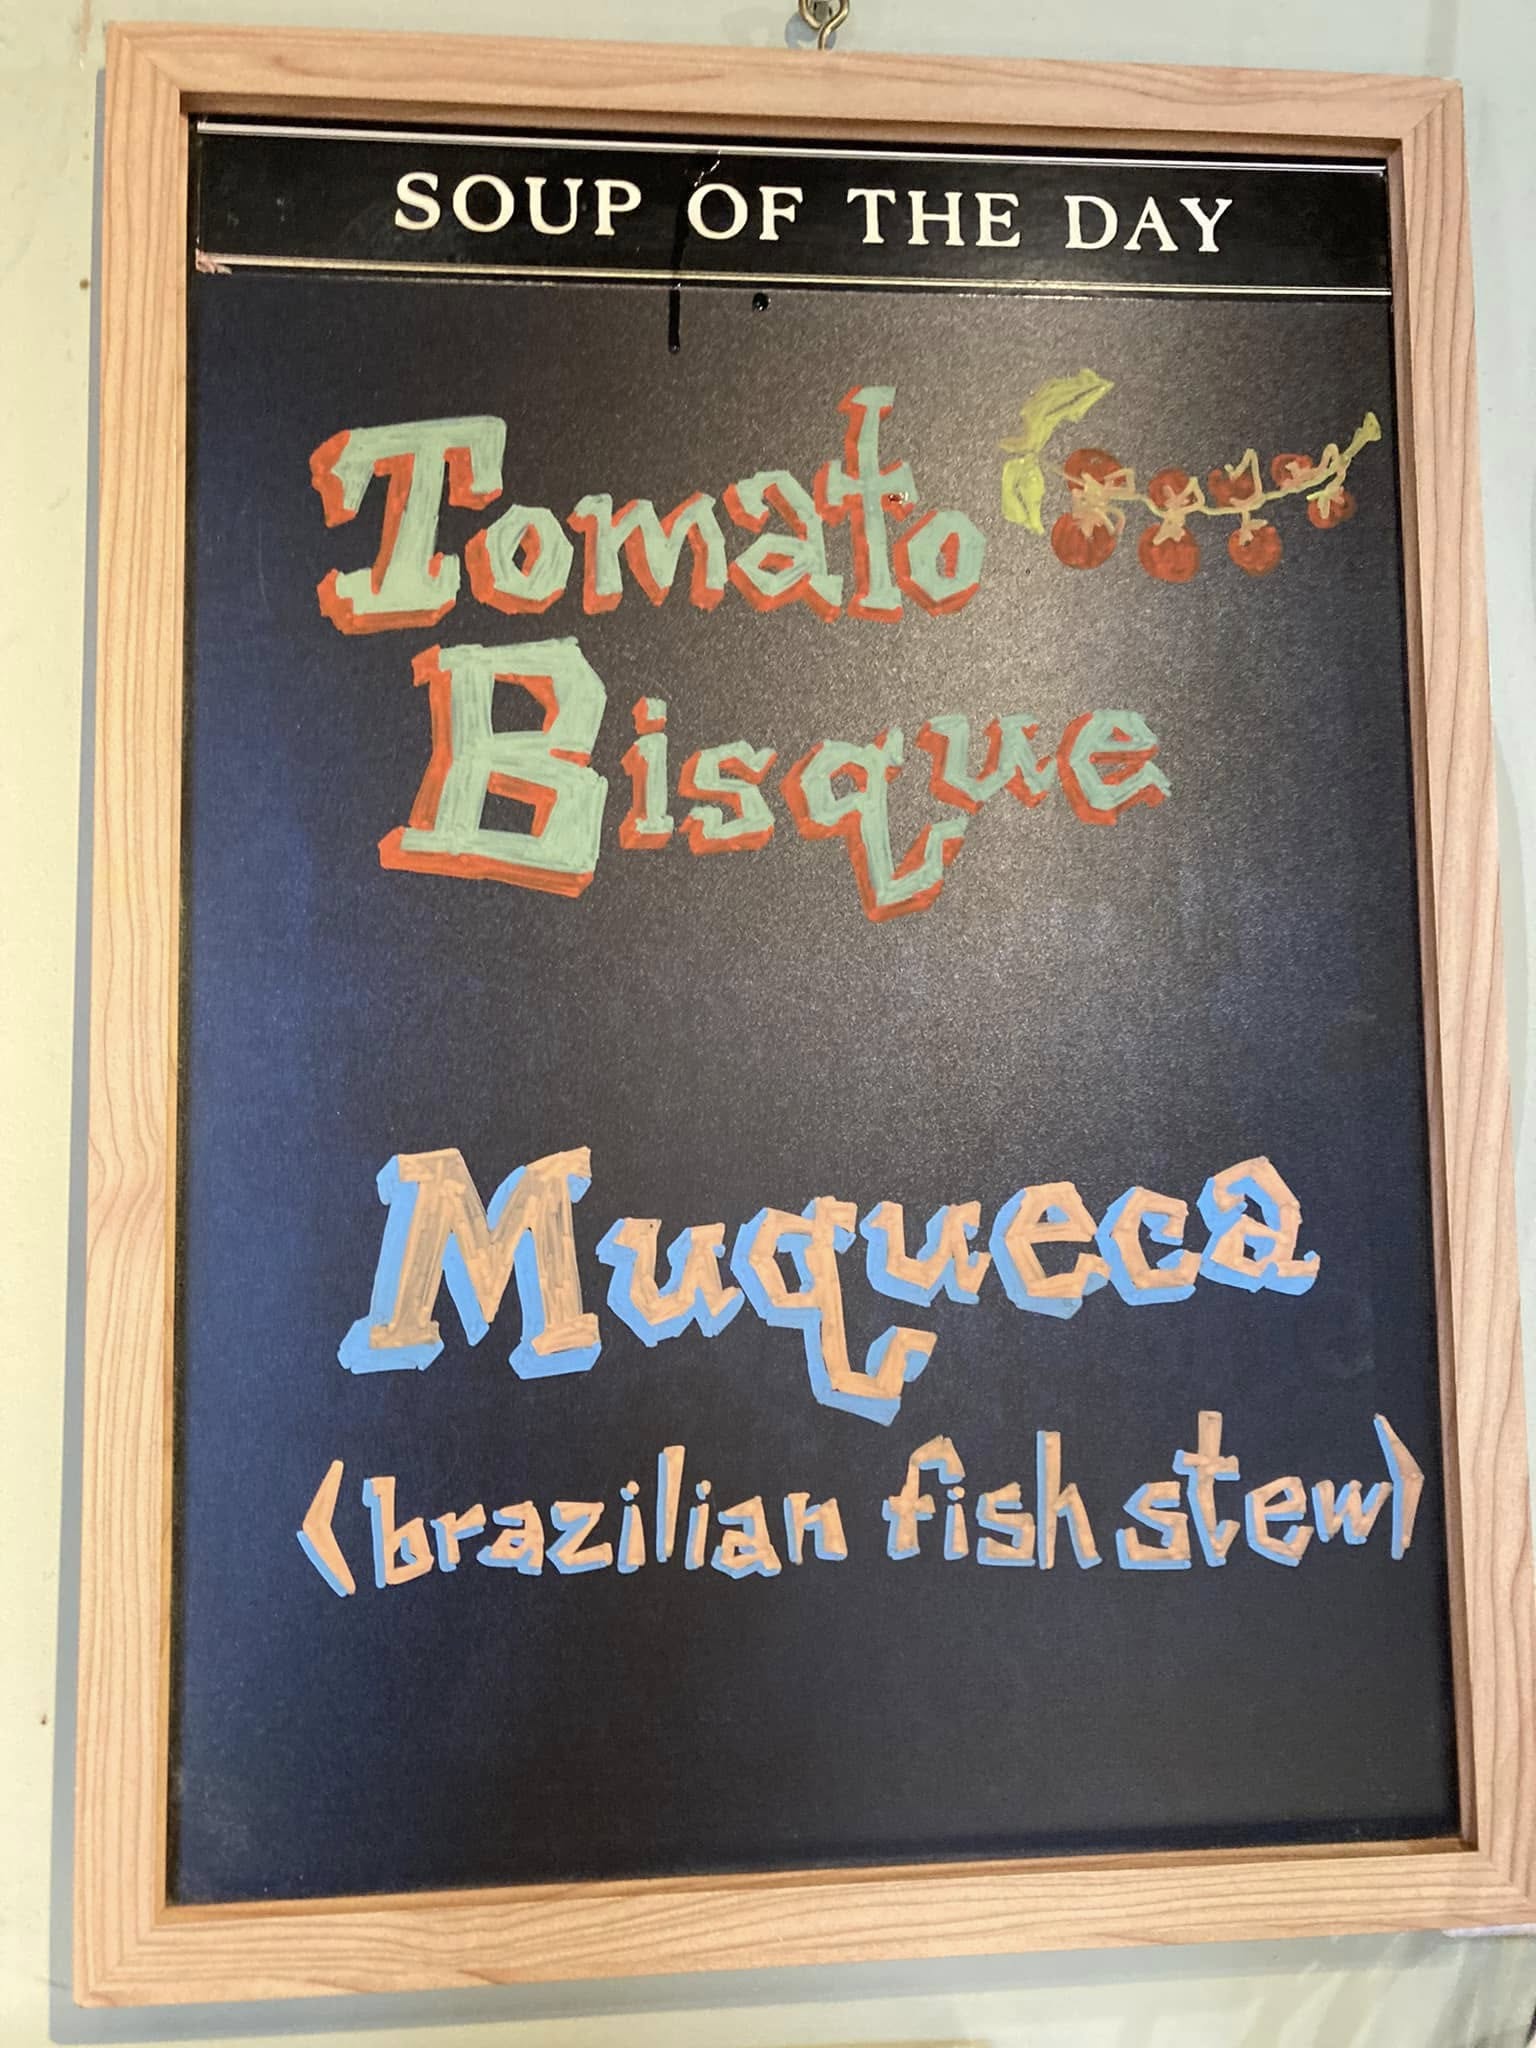 SOUP OF THE DAY
Tomato
Bisque
Muqueca
(brazilian fish stew)